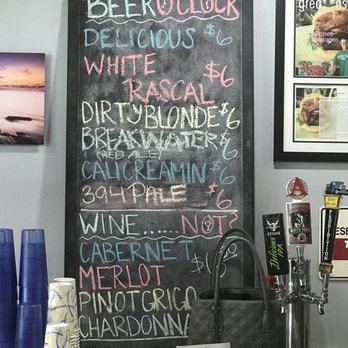 BEER O'CLOCK
DELICIOUS $6
WHITE
RASCAL $6
DIRTY BLONDE $6
BREAKWATER $6
(RED ALE)
CALICREAMIN $6
394 PALE $6
WINE......NOT?
CABERNET
MERLOT
PINOT GRIG
CHARDONNA
great
STONE
Delicious
IPA